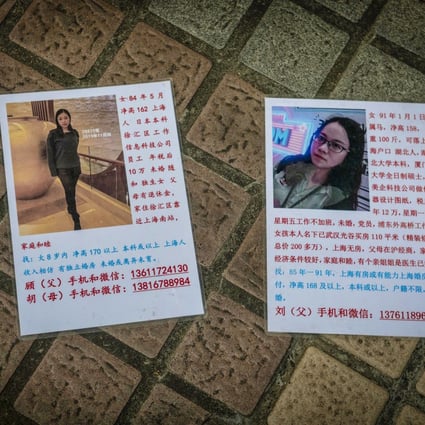 女 84 年 5 月
净高 162 上海
人 日本本科
徐汇区工作
信息科技公司
员工 年税后
10 万 未婚随
和 独生女 父
母有退休金,
家住徐汇区靠
近上海南站,
家庭和睦
找: 大 8 岁内 净高 170 以上 本科或以上 上海人
收入相仿 有独立婚房 未婚或离异未育.
顾（父）手机和微信: 13611724130
胡（母）手机和微信: 13816788984
女 91 年 1 月 1
属马, 净高 158,
重 100 斤,
海户口 湖北人,
北大学本科, 厦
大学全日制硕士,
美企科技公司做
器设计图纸, 税
年 12 万, 星期一
星期五工作不加班, 未婚, 党员, 浦东外高桥工作
女孩本人名下已武汉光谷买房 110 平米（精装修
总价 200 多万）, 上海无房, 父母在沪经商, 家
经济条件较好, 家庭和睦, 有个亲姐姐是医生已
找: 85 年一 91 年, 上海有房或有能力上海购婚
付, 净高 168 及以上, 本科或以上, 户籍不限,
婚.
刘（父）手机和微信: 137611896